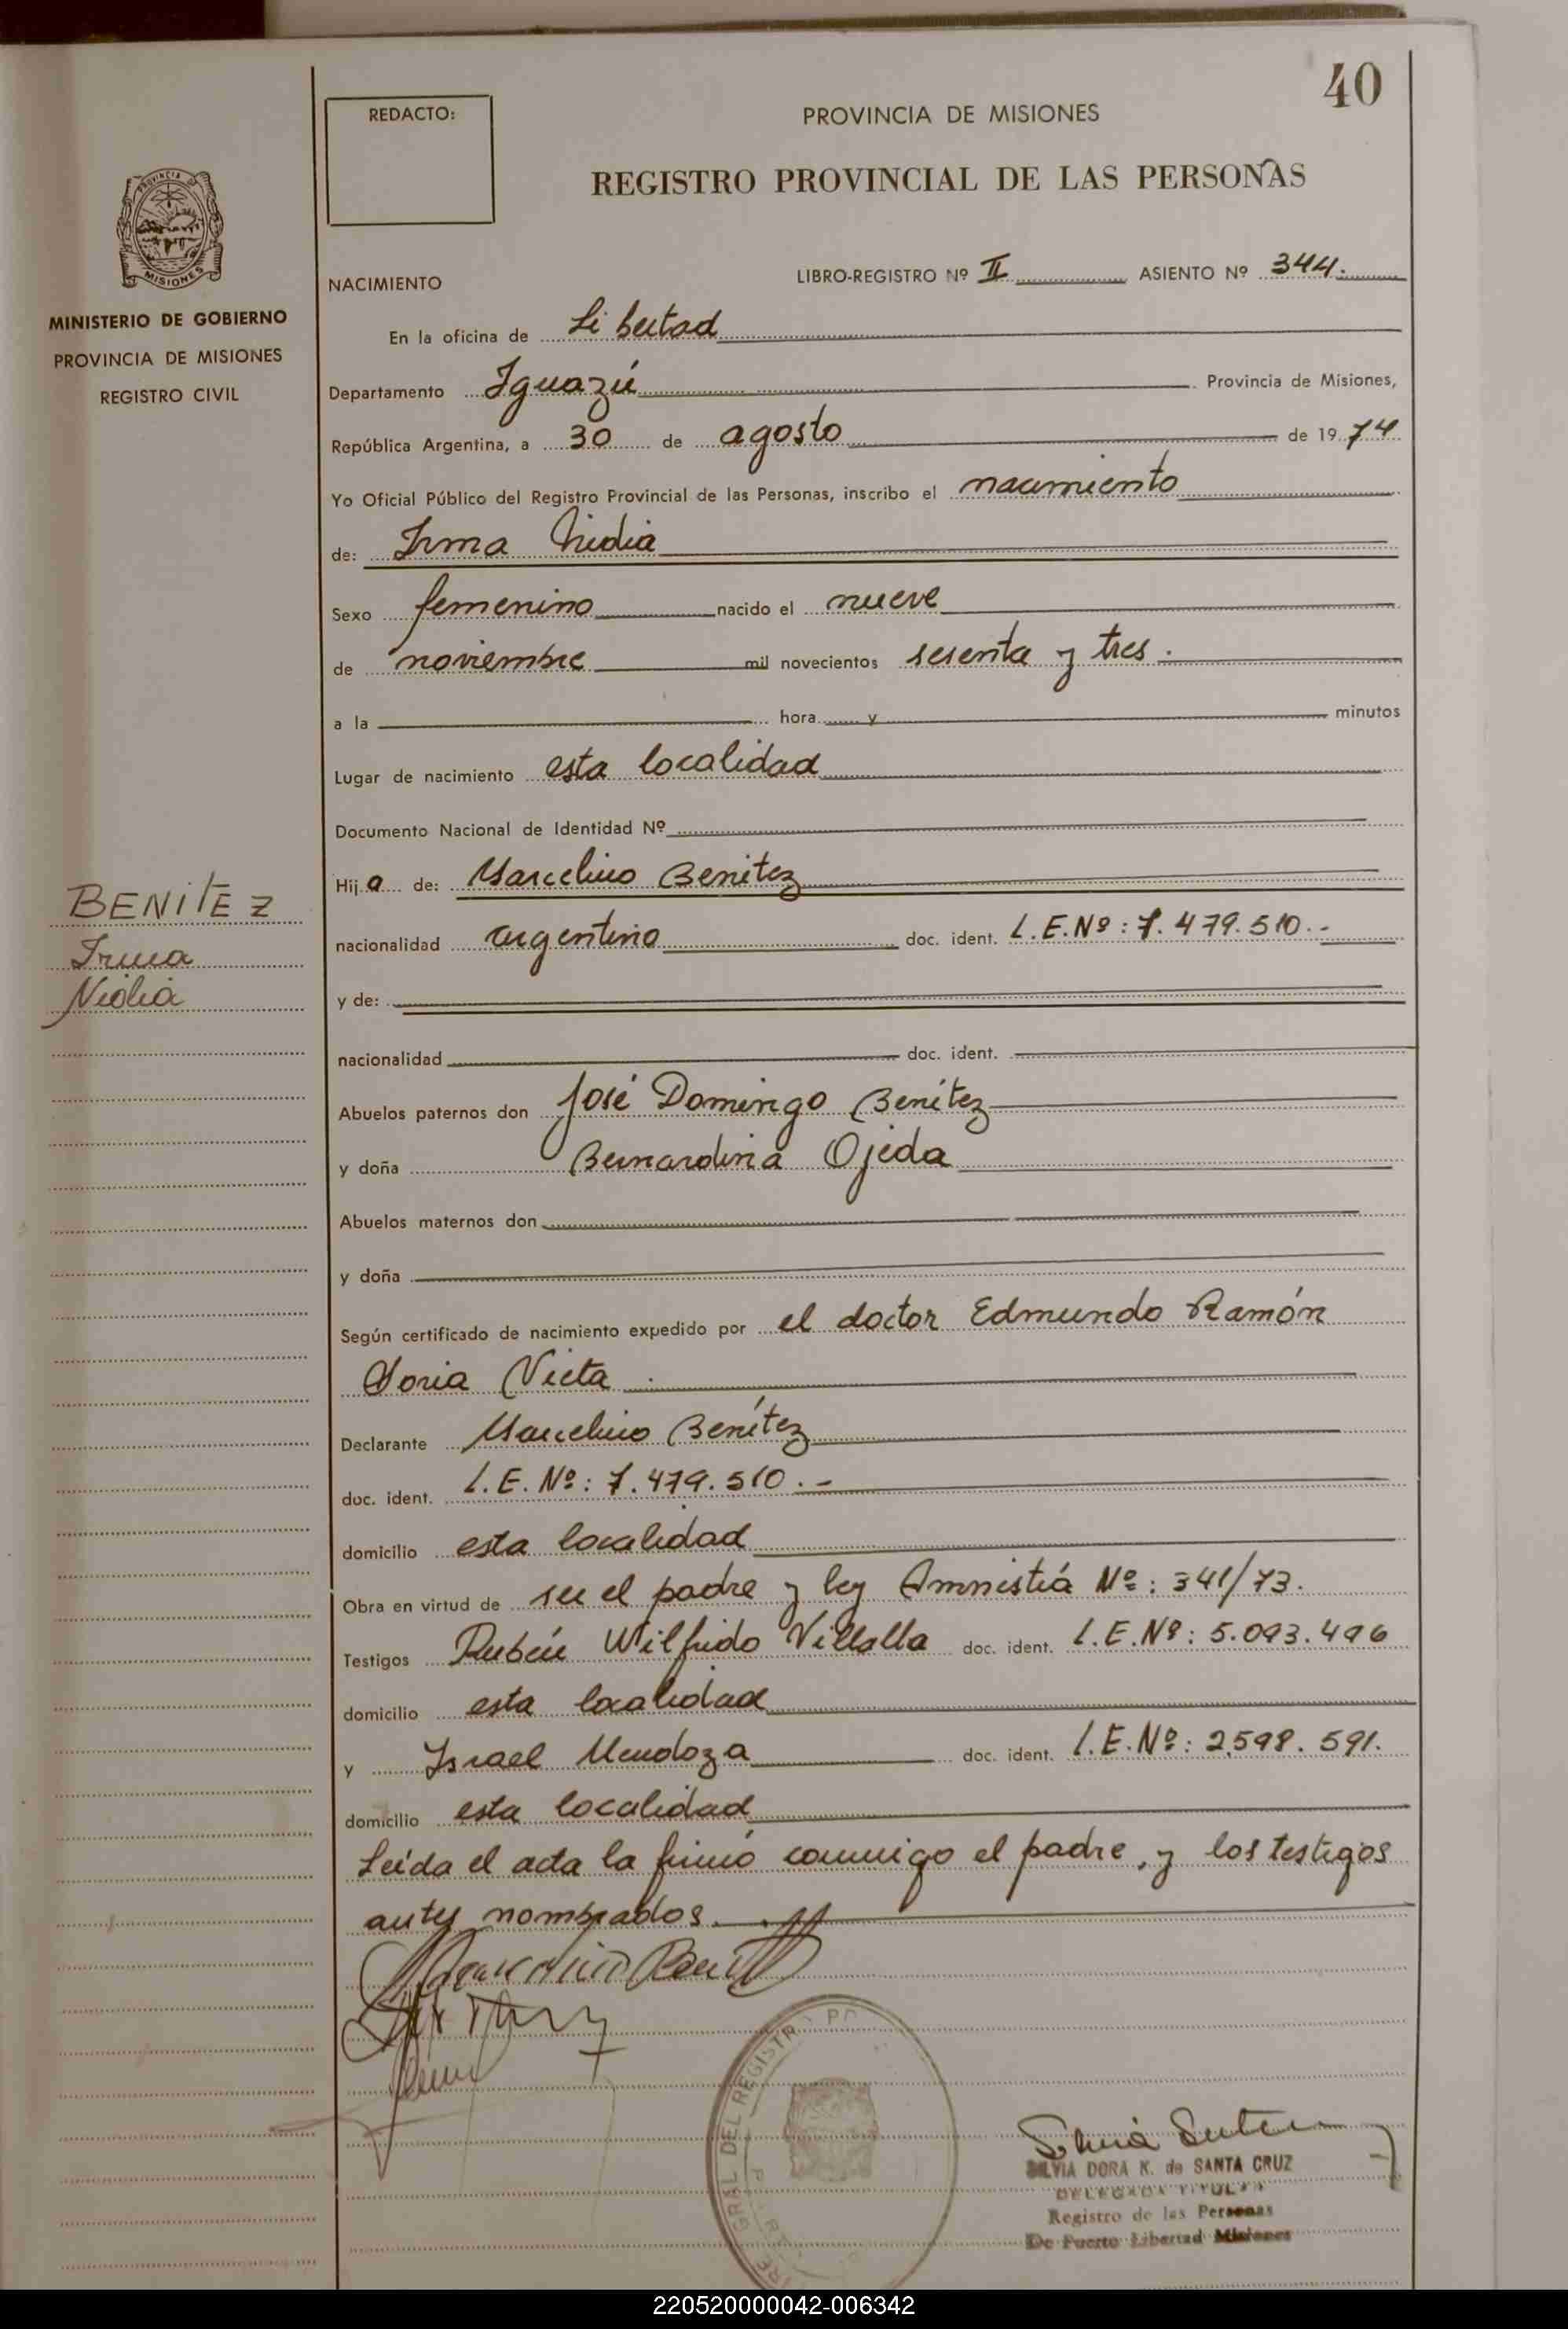 40
REDACTO:
PROVINCIA DE MISIONES
REGISTRO PROVINCIAL DE LAS PERSONAS
PROVINCIA
MISIONES
MINISTERIO DE GOBIERNO
PROVINCIA DE MISIONES
REGISTRO CIVIL
NACIMIENTO LIBRO-REGISTRO Nº II ASIENTO Nº 344.
En la oficina de Libertad
Departamento Iguazú Provincia de Misiones,
República Argentina, a 30 de agosto de 1974
Yo Oficial Público del Registro Provincial de las Personas, inscribo el nacimiento
de: Irma Nidia
Sexo femenino nacido el nueve
de noviembre mil novecientos sesenta y tres.
a la hora y minutos
Lugar de nacimiento esta localidad
Documento Nacional de Identidad Nº
Hija de: Marcelino Benítez
BENITEZ
Irma
Nidia
nacionalidad argentino doc. ident. L.E.Nº: 7.479.510.-
y de:
nacionalidad doc. ident.
Abuelos paternos don José Domingo Benítez
y doña Bernardina Ojeda
Abuelos maternos don
y doña
Según certificado de nacimiento expedido por el doctor Edmundo Ramón
Soria Vieta.
Declarante Marcelino Benítez
doc. ident. L.E.Nº: 7.479.510.-
domicilio esta localidad
Obra en virtud de ser el padre y ley Amnistía Nº: 341/73.
Testigos Rubén Wilfrido Villalla doc. ident. L.E.Nº: 5.093.496
domicilio esta localidad
y Israel Mendoza doc. ident. L.E.Nº: 2.598.591.
domicilio esta localidad
Leída el acta la firmó conmigo el padre, y los testigos
antes nombrados.
GRAL DEL REGISTR
SILVIA DORA K. de SANTA CRUZ
DELEGADA TITULAR
Registro de las Personas
De Puerto Libertad Misiones
220520000042-006342